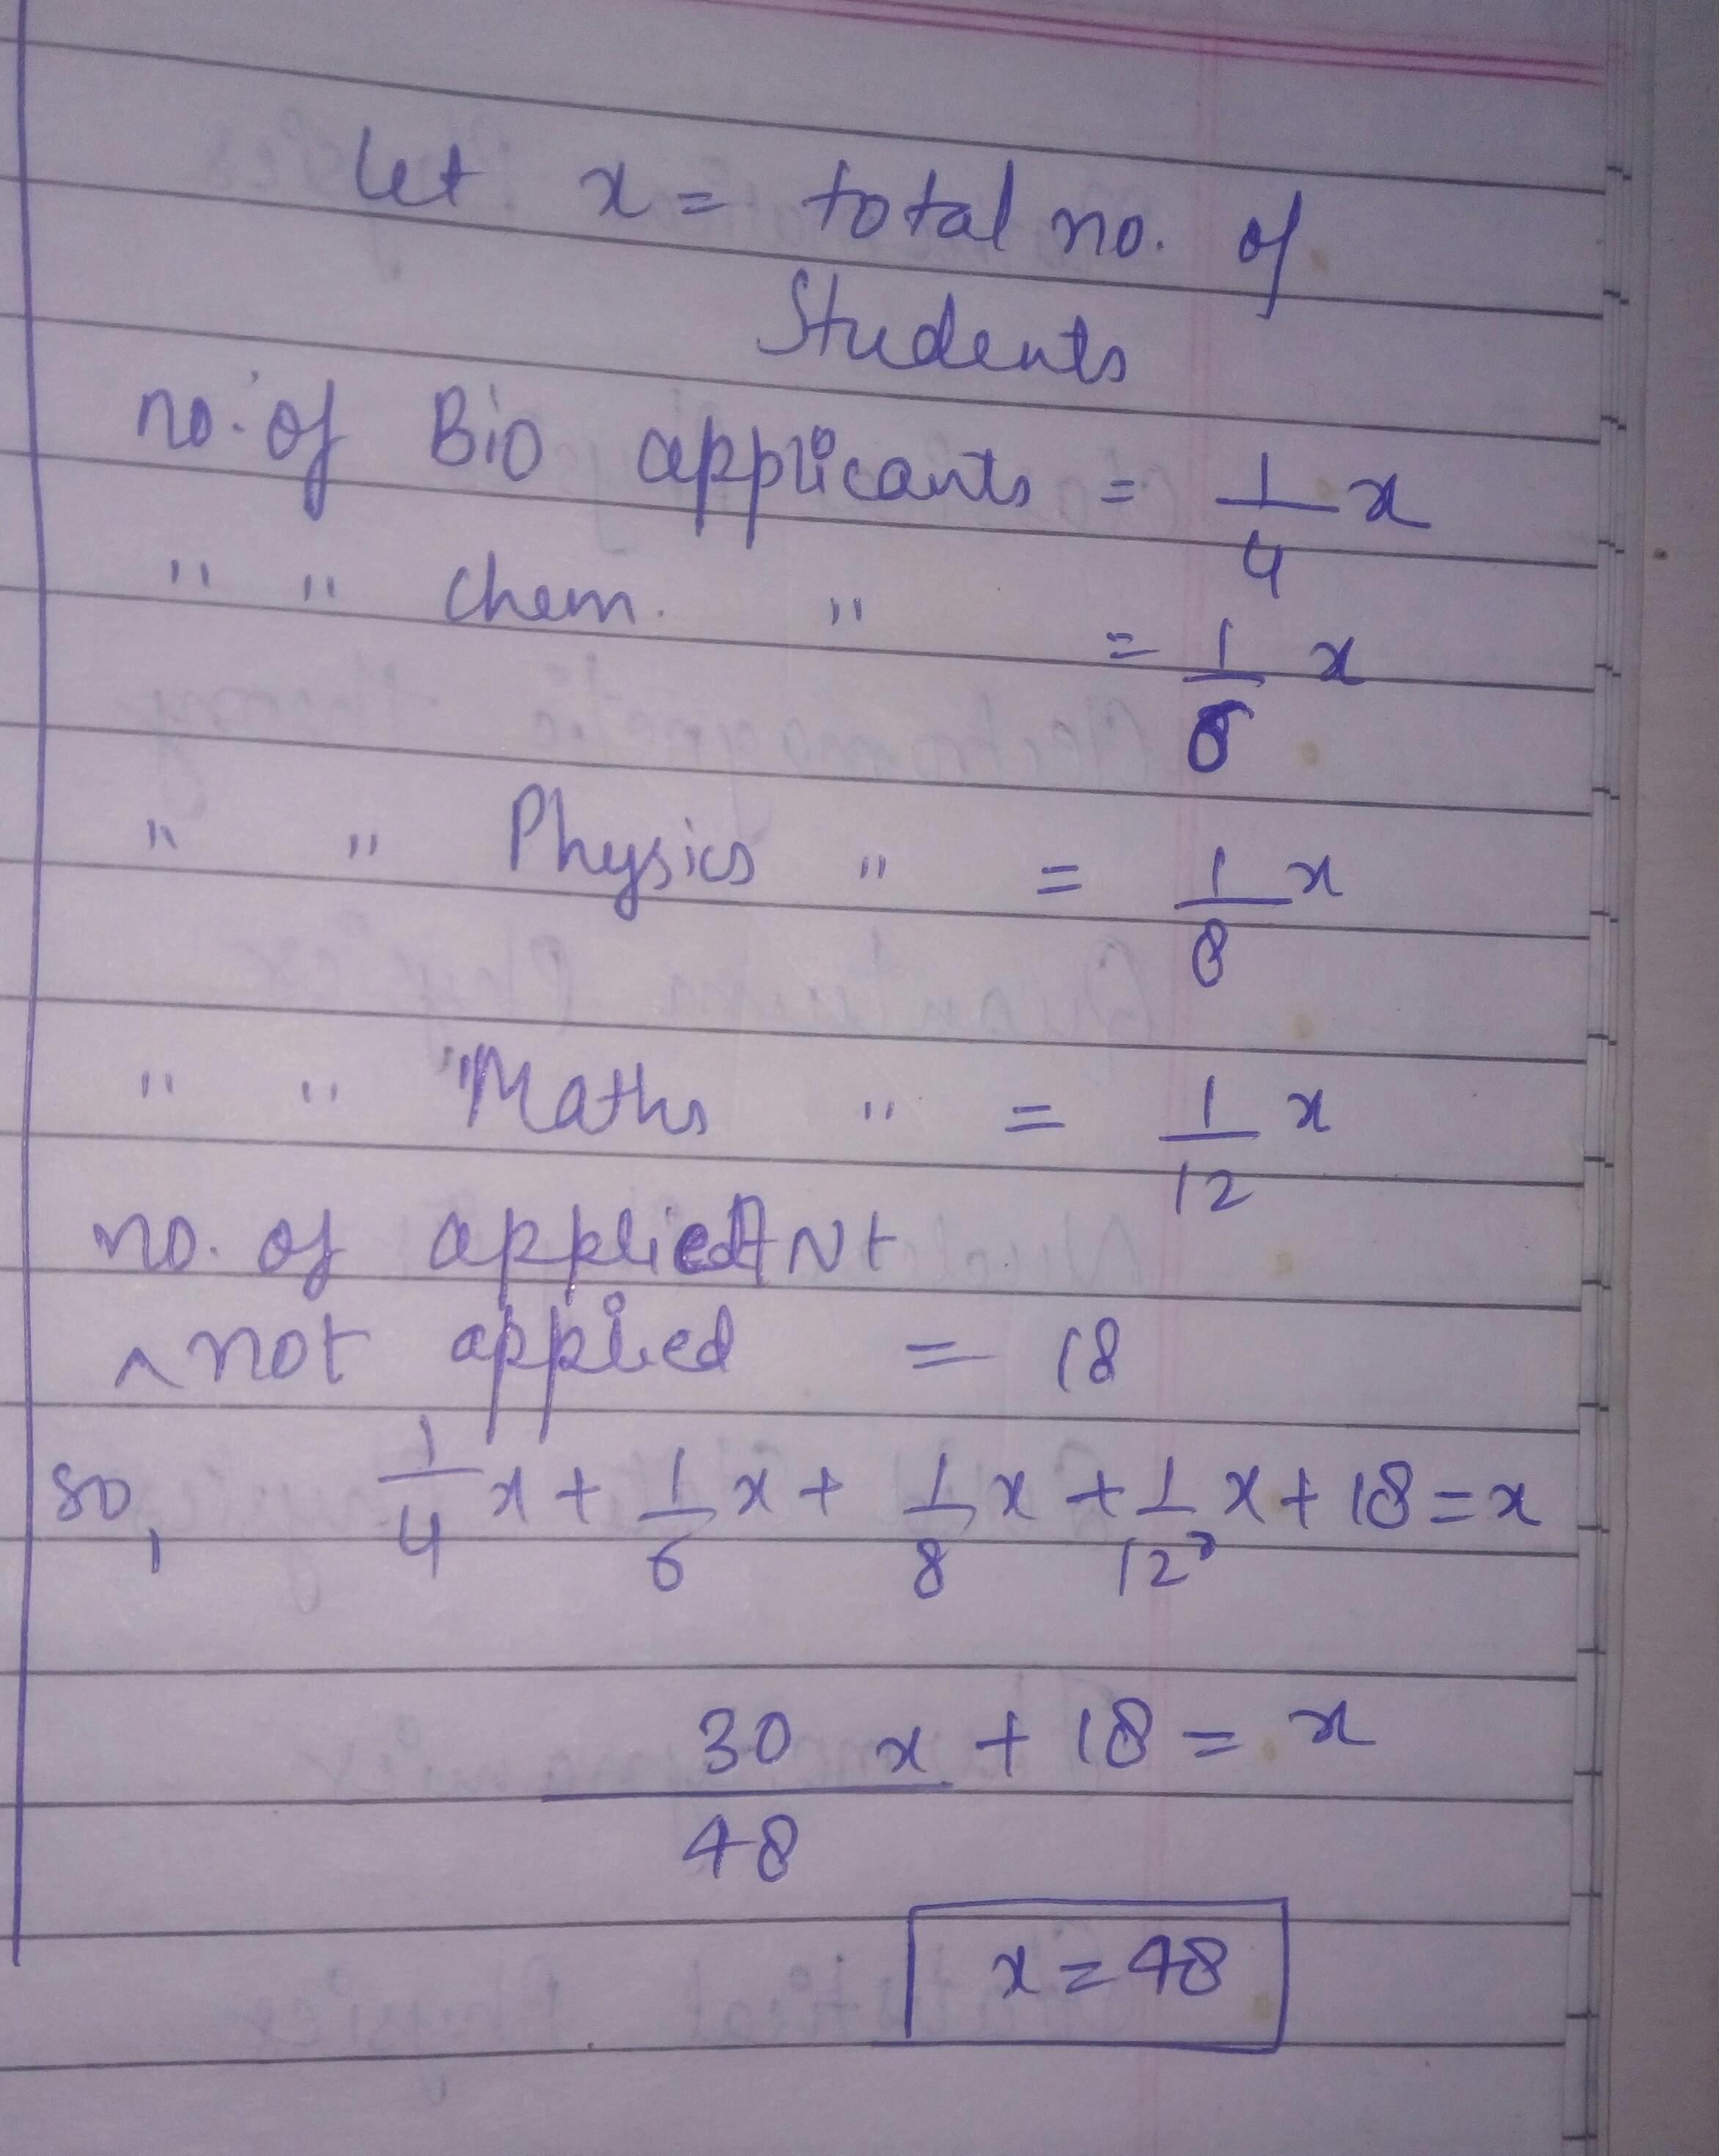 let x = total no. of
Students
no. of Bio applicants = 1/4 x
" " Chem. " = 1/6 x
" " Physics " = 1/8 x
" " Maths " = 1/12 x
no. of appliedANt
^ not applied = 18
so, 1/4 x + 1/6 x + 1/8 x + 1/12 x + 18 = x
30/48 x + 18 = x
x = 48